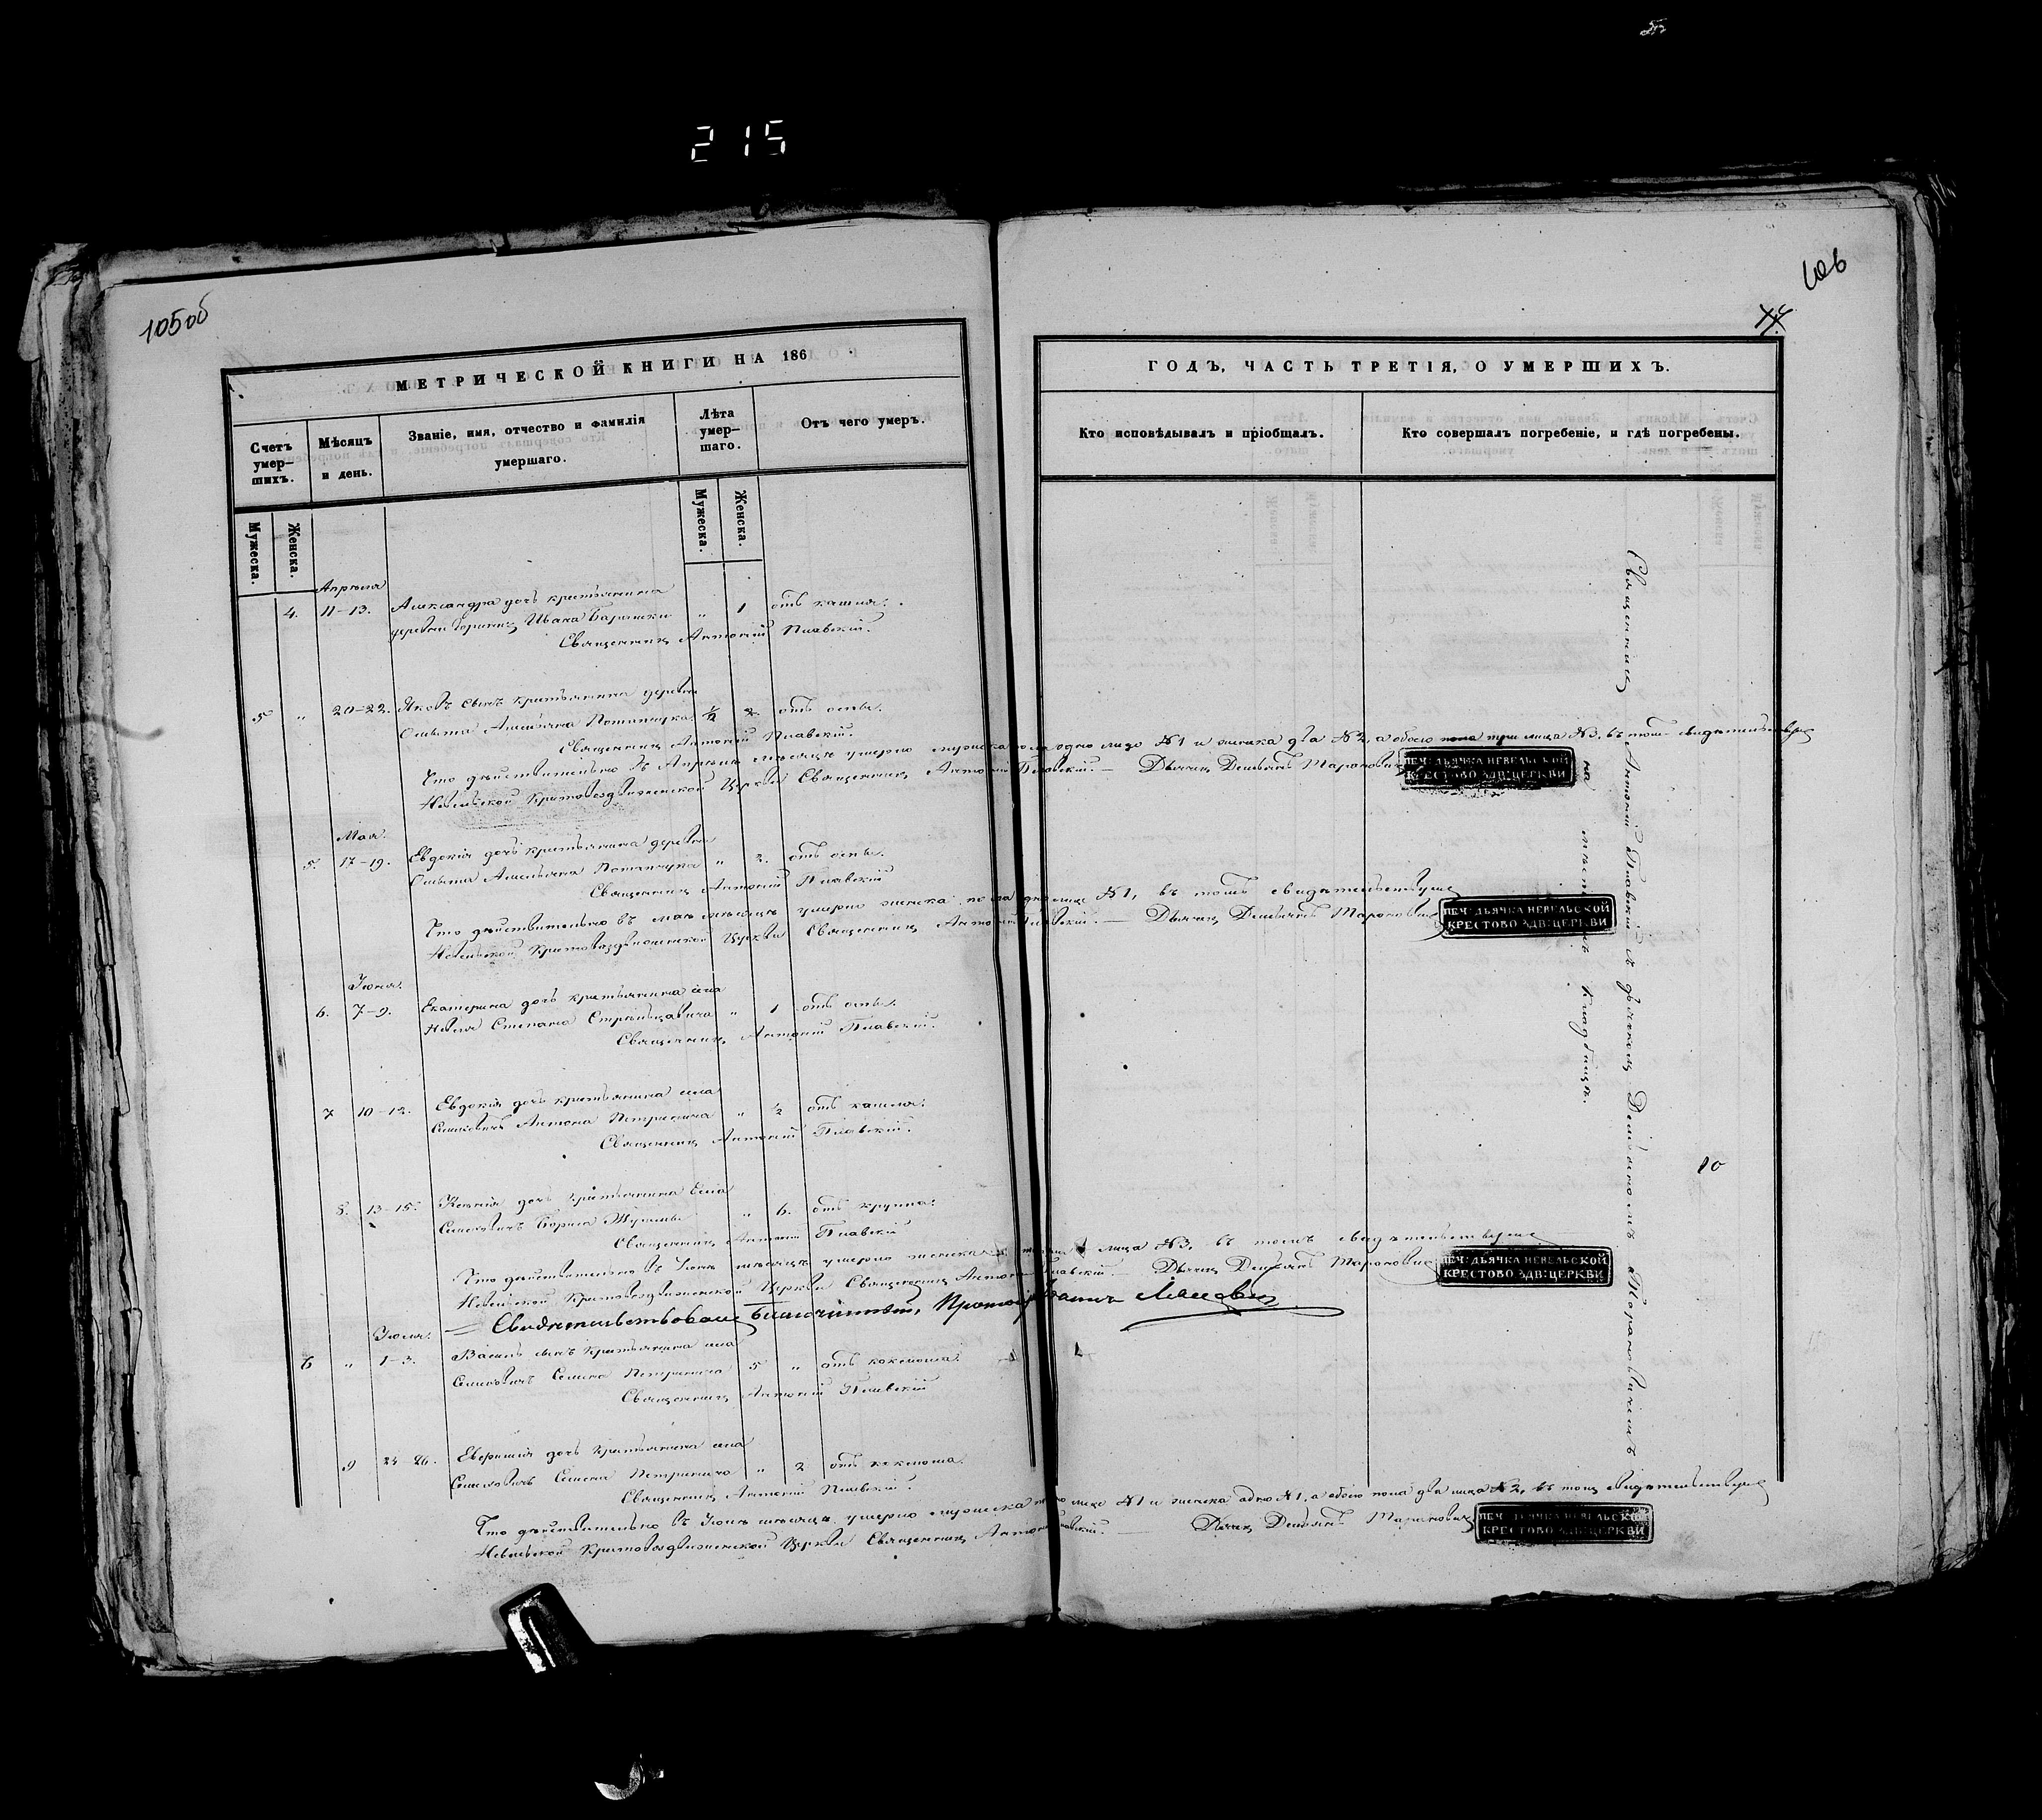 215
105об
106
МЕТРИЧЕСКОЙ КНИГИ НА 186
ГОДЪ, ЧАСТЬ ТРЕТІЯ, О УМЕРШИХЪ.
Счетъ умер-шихъ.
Мѣсяцъ и день.
Званіе, имя, отчество и фамилія умершаго.
Лѣта умер-шаго.
Отъ чего умеръ.
Кто исповѣдывалъ и пріобщалъ.
Кто совершалъ погребеніе, и гдѣ погребены.
Мужеска.
Женска.
Мужеска.
Женска.
Апрѣля
4. 11-13. Александра дочь крестьянина
деревни Ивана " 1 отъ кашля.
Священникъ Антоній Плавскій.
5 " 20-22. Яковъ сынъ крестьянина деревни
Омельяна Потапчука ½ 2. отъ оспы.
Священникъ Антоній Плавскій.
Что дѣйствительно въ Апрѣлѣ мѣсяцѣ умерло мужеска пола одно лицо №1 и женска два №2, а обоего пола три лица №3, въ томъ свидѣтельствуемъ
Невельской Крестовоздвиженской Церкви Священникъ Антоній Плавскій. — Дьячекъ Демьянъ Тарановичъ
ПЕЧ: ДЬЯЧКА НЕВЕЛЬСКОЙ
КРЕСТОВОЗДВ: ЦЕРКВИ
Мая.
5. 17-19. Евдокія дочь крестьянина деревни
Омельяна Потапчука " 2. отъ оспы.
Священникъ Антоній Плавскій
Что дѣйствительно въ маѣ мѣсяцѣ умерло женска пола одно лице №1, въ томъ свидѣтельствуемъ
Невельской Крестовоздвиженской Церкви Священникъ Антоній Плавскій. — Дьячекъ Демьянъ Тарановичъ
ПЕЧ: ДЬЯЧКА НЕВЕЛЬСКОЙ
КРЕСТОВОЗДВ: ЦЕРКВИ
Іюня.
6. 7-9. Екатерина дочь крестьянина села
Невля Степана " 1 отъ оспы.
Священникъ Антоній Плавскій.
7 10-12. Евдокія дочь крестьянина села
Семховичъ Антона " ½ отъ кашля.
Священникъ Антоній Плавскій.
8. 13-15. Ксенія дочь крестьянина села
Семховичъ Бориса " 6. отъ крупа.
Священникъ Антоній Плавскій
Что дѣйствительно въ Іюнѣ мѣсяцѣ умерло женска лица №3, въ томъ свидѣтельствуемъ
Невельской Крестовоздвиженской Церкви Священникъ Антоній Плавскій. — Дьячекъ Демьянъ Тарановичъ
ПЕЧ: ДЬЯЧКА НЕВЕЛЬСКОЙ
КРЕСТОВОЗДВ: ЦЕРКВИ
Свидѣтельствовалъ Благочинный,
Іюля.
6 " 1-3. сынъ крестьянина села
Семховичъ Семена 5 " отъ коклюша.
Священникъ Антоній Плавскій
9 24-26. дочь крестьянина села
Семховичъ Семена " 2 отъ коклюша.
Священникъ Антоній Плавскій.
Что дѣйствительно въ Іюлѣ мѣсяцѣ умерло мужеска лице №1 и женска одно №1, а обоего пола два лица №2, въ томъ свидѣтельствуемъ
Невельской Крестовоздвиженской Церкви Священникъ Антоній Плавскій. — Дьячекъ Демьянъ Тарановичъ
ПЕЧ: ДЬЯЧКА НЕВЕЛЬСКОЙ
КРЕСТОВОЗДВ: ЦЕРКВИ
Священникъ Антоній Плавскій съ дьячкомъ Демьяномъ Тарановичемъ
на мѣстномъ кладбищѣ.
10